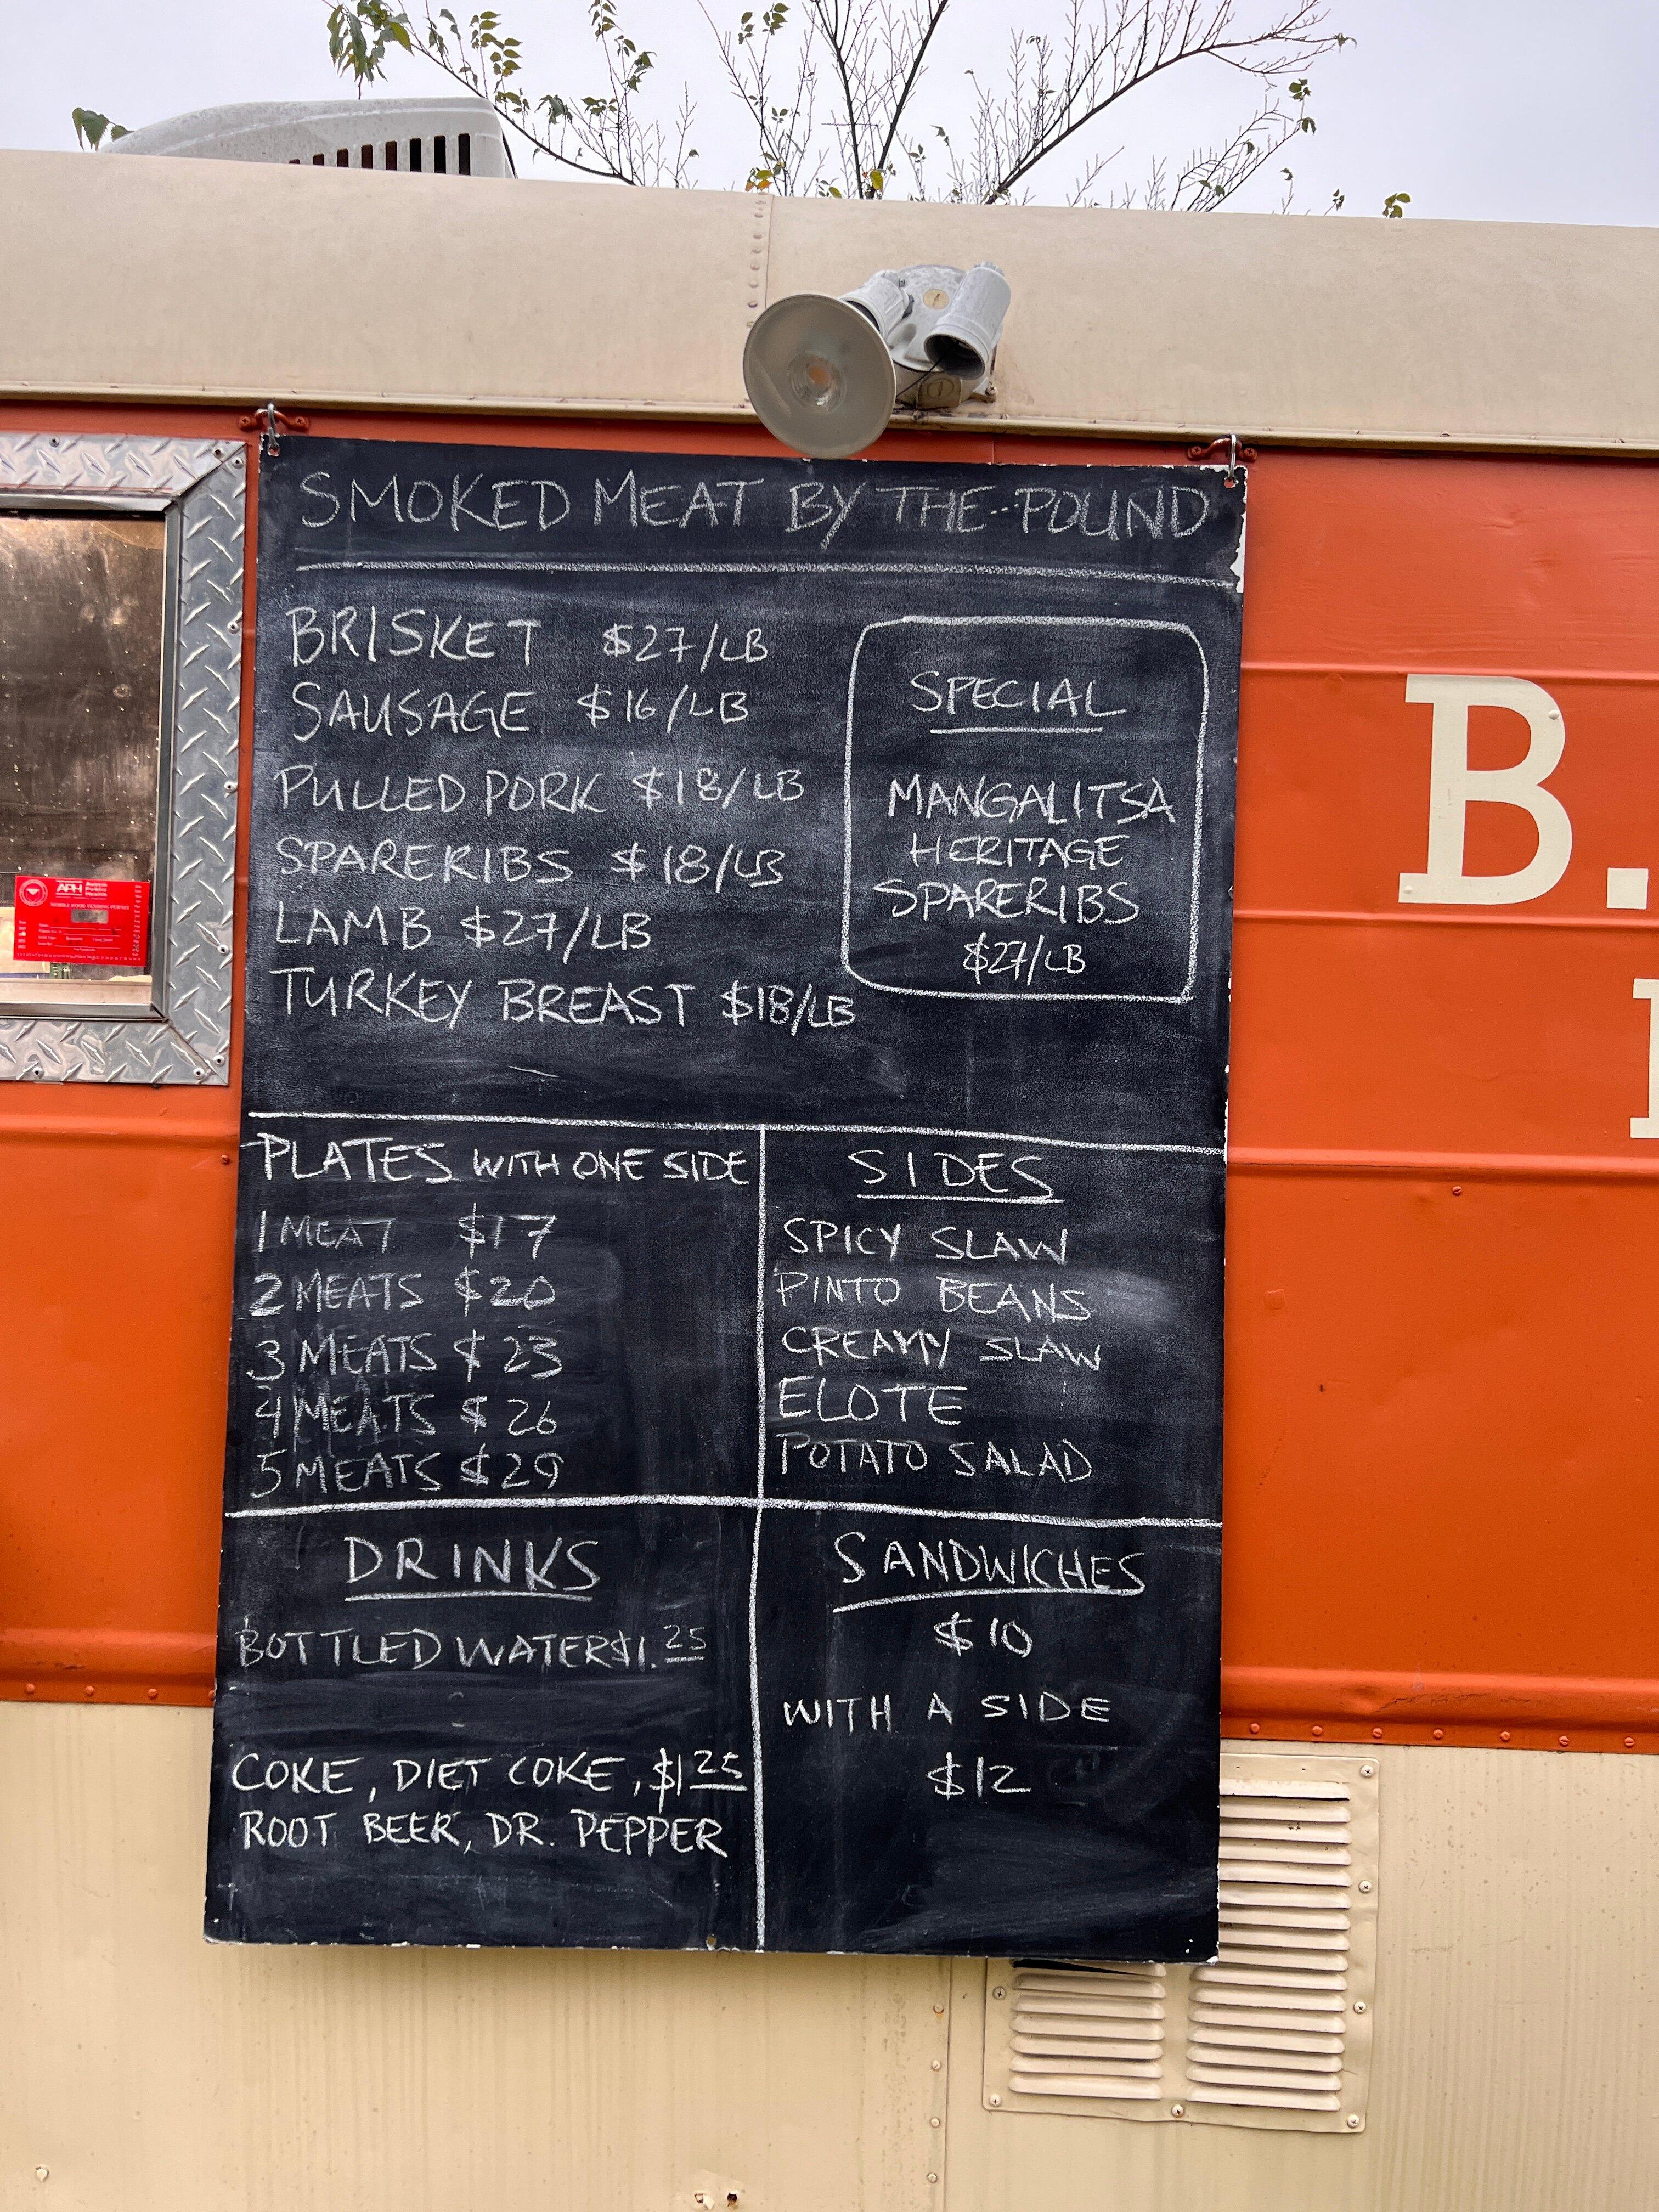 SMOKED MEAT BY THE POUND
BRISKET $27/LB
SAUSAGE $16/LB
PULLED PORK $18/LB
SPARERIBS $18/LB
LAMB $27/LB
TURKEY BREAST $18/LB
SPECIAL
MANGALITSA
HERITAGE
SPARERIBS
$27/LB
PLATES WITH ONE SIDE
1 MEAT $17
2 MEATS $20
3 MEATS $23
4 MEATS $26
5 MEATS $29
SIDES
SPICY SLAW
PINTO BEANS
CREAMY SLAW
ELOTE
POTATO SALAD
DRINKS
BOTTLED WATER $1.25
COKE, DIET COKE, $1 25
ROOT BEER, DR. PEPPER
SANDWICHES
$10
WITH A SIDE
$12
B.
APH Austin
Public
Health
MOBILE FOOD VENDING PERMIT